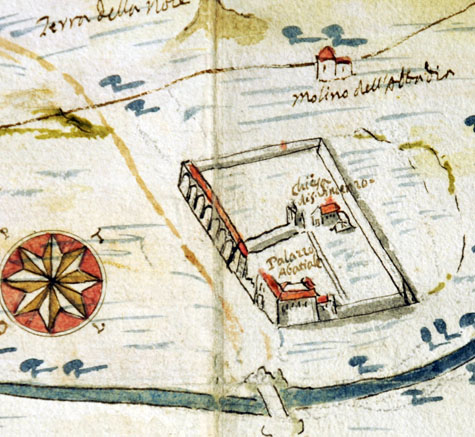 Terra della
Molino dell'Abbadia
Chiesa
di S. Vincenzo
Palazzo
Abatiale